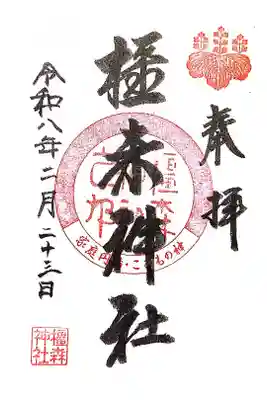 奉拝
橿森神社
家庭円満・こどもの神
令和八年二月二十三日
橿森
神社